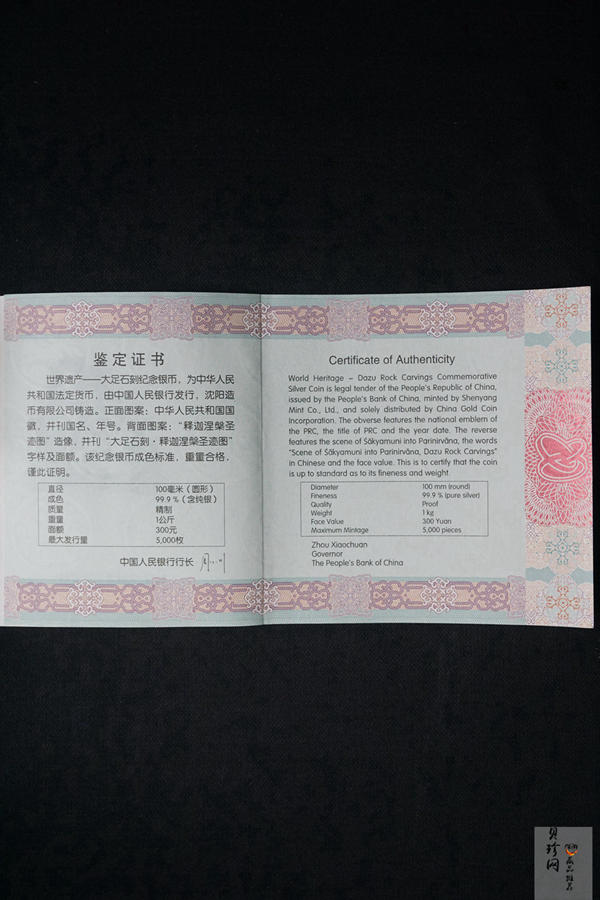 鉴定证书
世界遗产——大足石刻纪念银币，为中华人民
共和国法定货币，由中国人民银行发行，沈阳造
币有限公司铸造。正面图案：中华人民共和国国
徽，并刊国名、年号。背面图案：“释迦涅槃圣
迹图”造像，并刊“大足石刻·释迦涅槃圣迹图”
字样及面额。该纪念银币成色标准，重量合格，
谨此证明。
直径 100毫米（圆形）
成色 99.9％（含纯银）
质量 精制
重量 1公斤
面额 300元
最大发行量 5,000枚
中国人民银行行长
Certificate of Authenticity
World Heritage – Dazu Rock Carvings Commemorative
Silver Coin is legal tender of the People's Republic of China,
issued by the People's Bank of China, minted by Shenyang
Mint Co., Ltd., and solely distributed by China Gold Coin
Incorporation. The obverse features the national emblem of
the PRC, the title of PRC and the year date. The reverse
features the scene of Sākyamuni into Parinirvāna, the words
“Scene of Sākyamuni into Parinirvāna, Dazu Rock Carvings”
in Chinese and the face value. This is to certify that the coin
is up to standard as to its fineness and weight.
Diameter 100 mm (round)
Fineness 99.9 % (pure silver)
Quality Proof
Weight 1 kg
Face Value 300 Yuan
Maximum Mintage 5,000 pieces
Zhou Xiaochuan
Governor
The People's Bank of China
贝珍网
藏品推荐